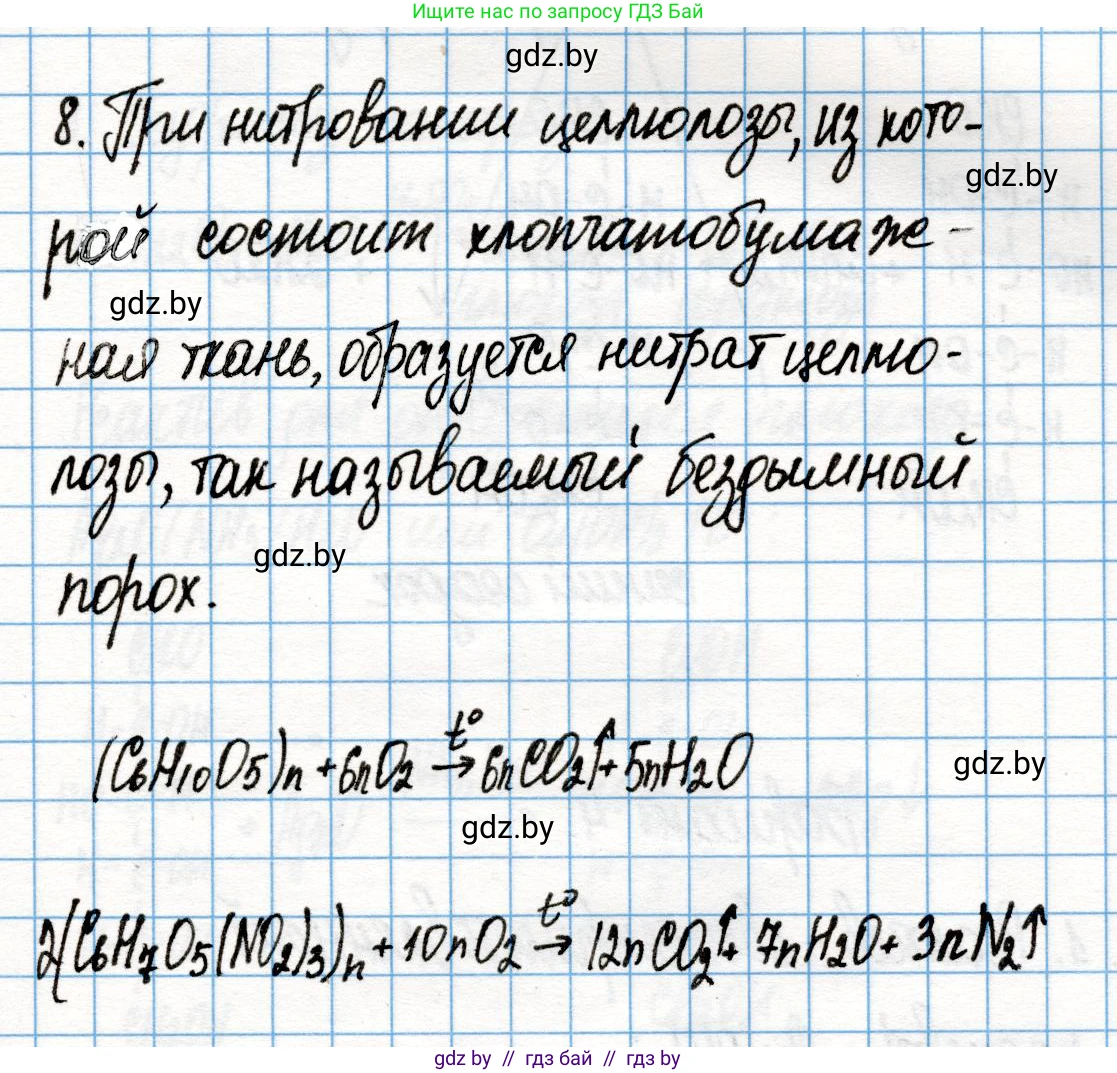 Ищите нас по запросу ГДЗ Бай
gdz.by
8. При нитровании целлюлозы, из кото-
gdz.by
рой состоит хлопчатобумаж-
gdz.by
ная ткань, образуется нитрат целлю-
лозы, так называемый бездымный
gdz.by
порох.
(C6H10O5)n + 6nO2 t° → 6nCO2↑ + 5nH2O
gdz.by
gdz.by
2(C6H7O5(NO2)3)n + 10nO2 t° → 12nCO2↑ + 7nH2O + 3nN2↑
gdz by // гдз бай // gdz by